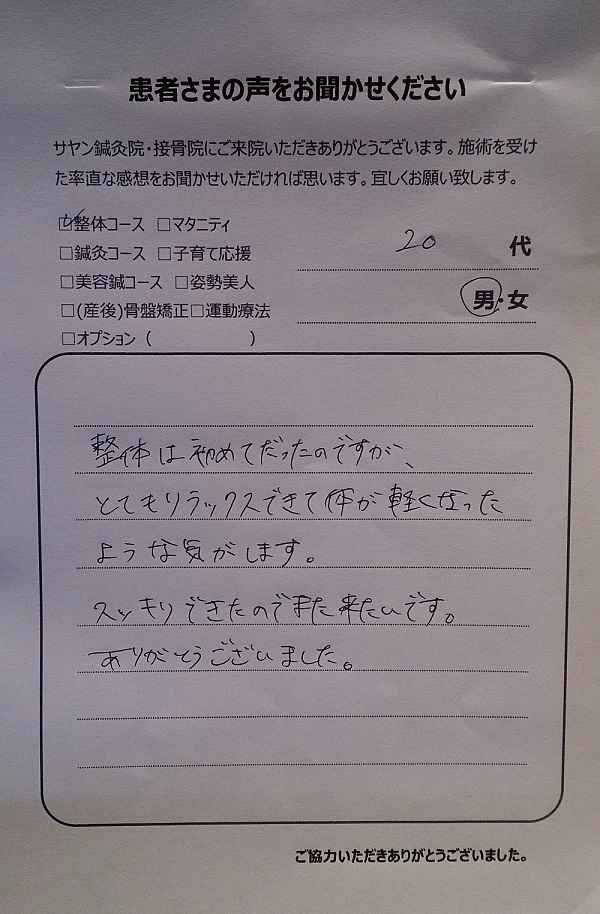 患者さまの声をお聞かせください
サヤン鍼灸院・接骨院にご来院いただきありがとうございます。施術を受け
た率直な感想をお聞かせいただければ思います。宜しくお願い致します。
☑整体コース □マタニティ
□鍼灸コース □子育て応援
□美容鍼コース □姿勢美人
□(産後)骨盤矯正□運動療法
□オプション（　　　　　）
20 代
男・女
整体は初めてだったのですが、
とてもリラックスできて体が軽くなった
ような気がします。
スッキリできたのでまた来たいです。
ありがとうございました。
ご協力いただきありがとうございました。